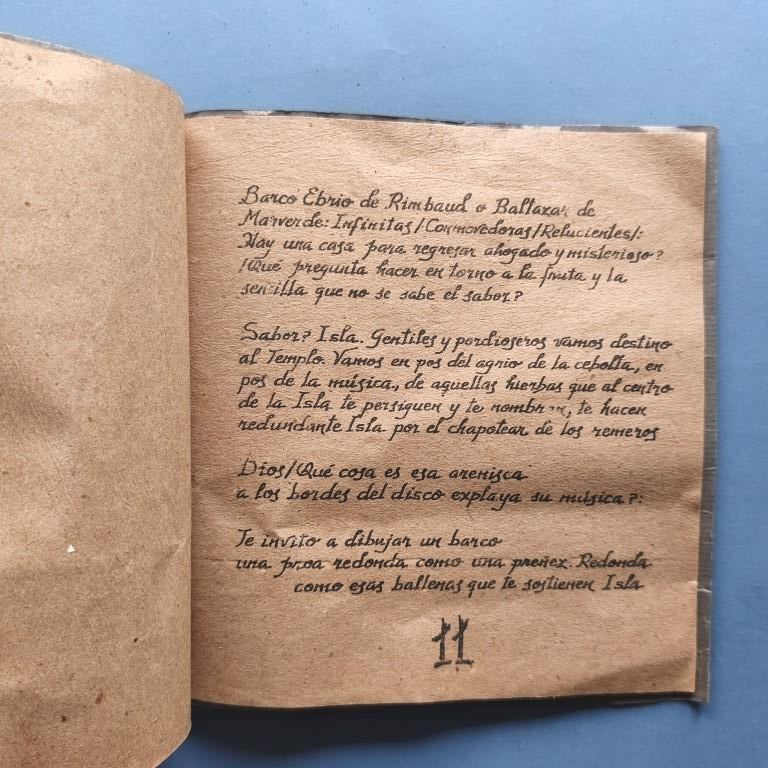 Barco Ebrio de Rimbaud o Baltazar de
Marverde: Infinitas/Conmovedoras/Relucientes/:
Hay una casa para regresar ahogado y misterioso?
/Qué pregunta hacer en torno a la fruta y la
semilla que no se sabe el sabor?
Sabor? Isla. Gentiles y pordioseros vamos destino
al Templo. Vamos en pos del agrio de la cebolla, en
pos de la música, de aquellas hierbas que al centro
de la Isla te persiguen y te nombran, te hacen
redundante Isla por el chapotear de los remeros
Dios/Qué cosa es esa arenisca
a los bordes del disco explaya su música?:
Te invito a dibujar un barco
una proa redonda como una preñez. Redonda
como esas ballenas que te sostienen Isla
11